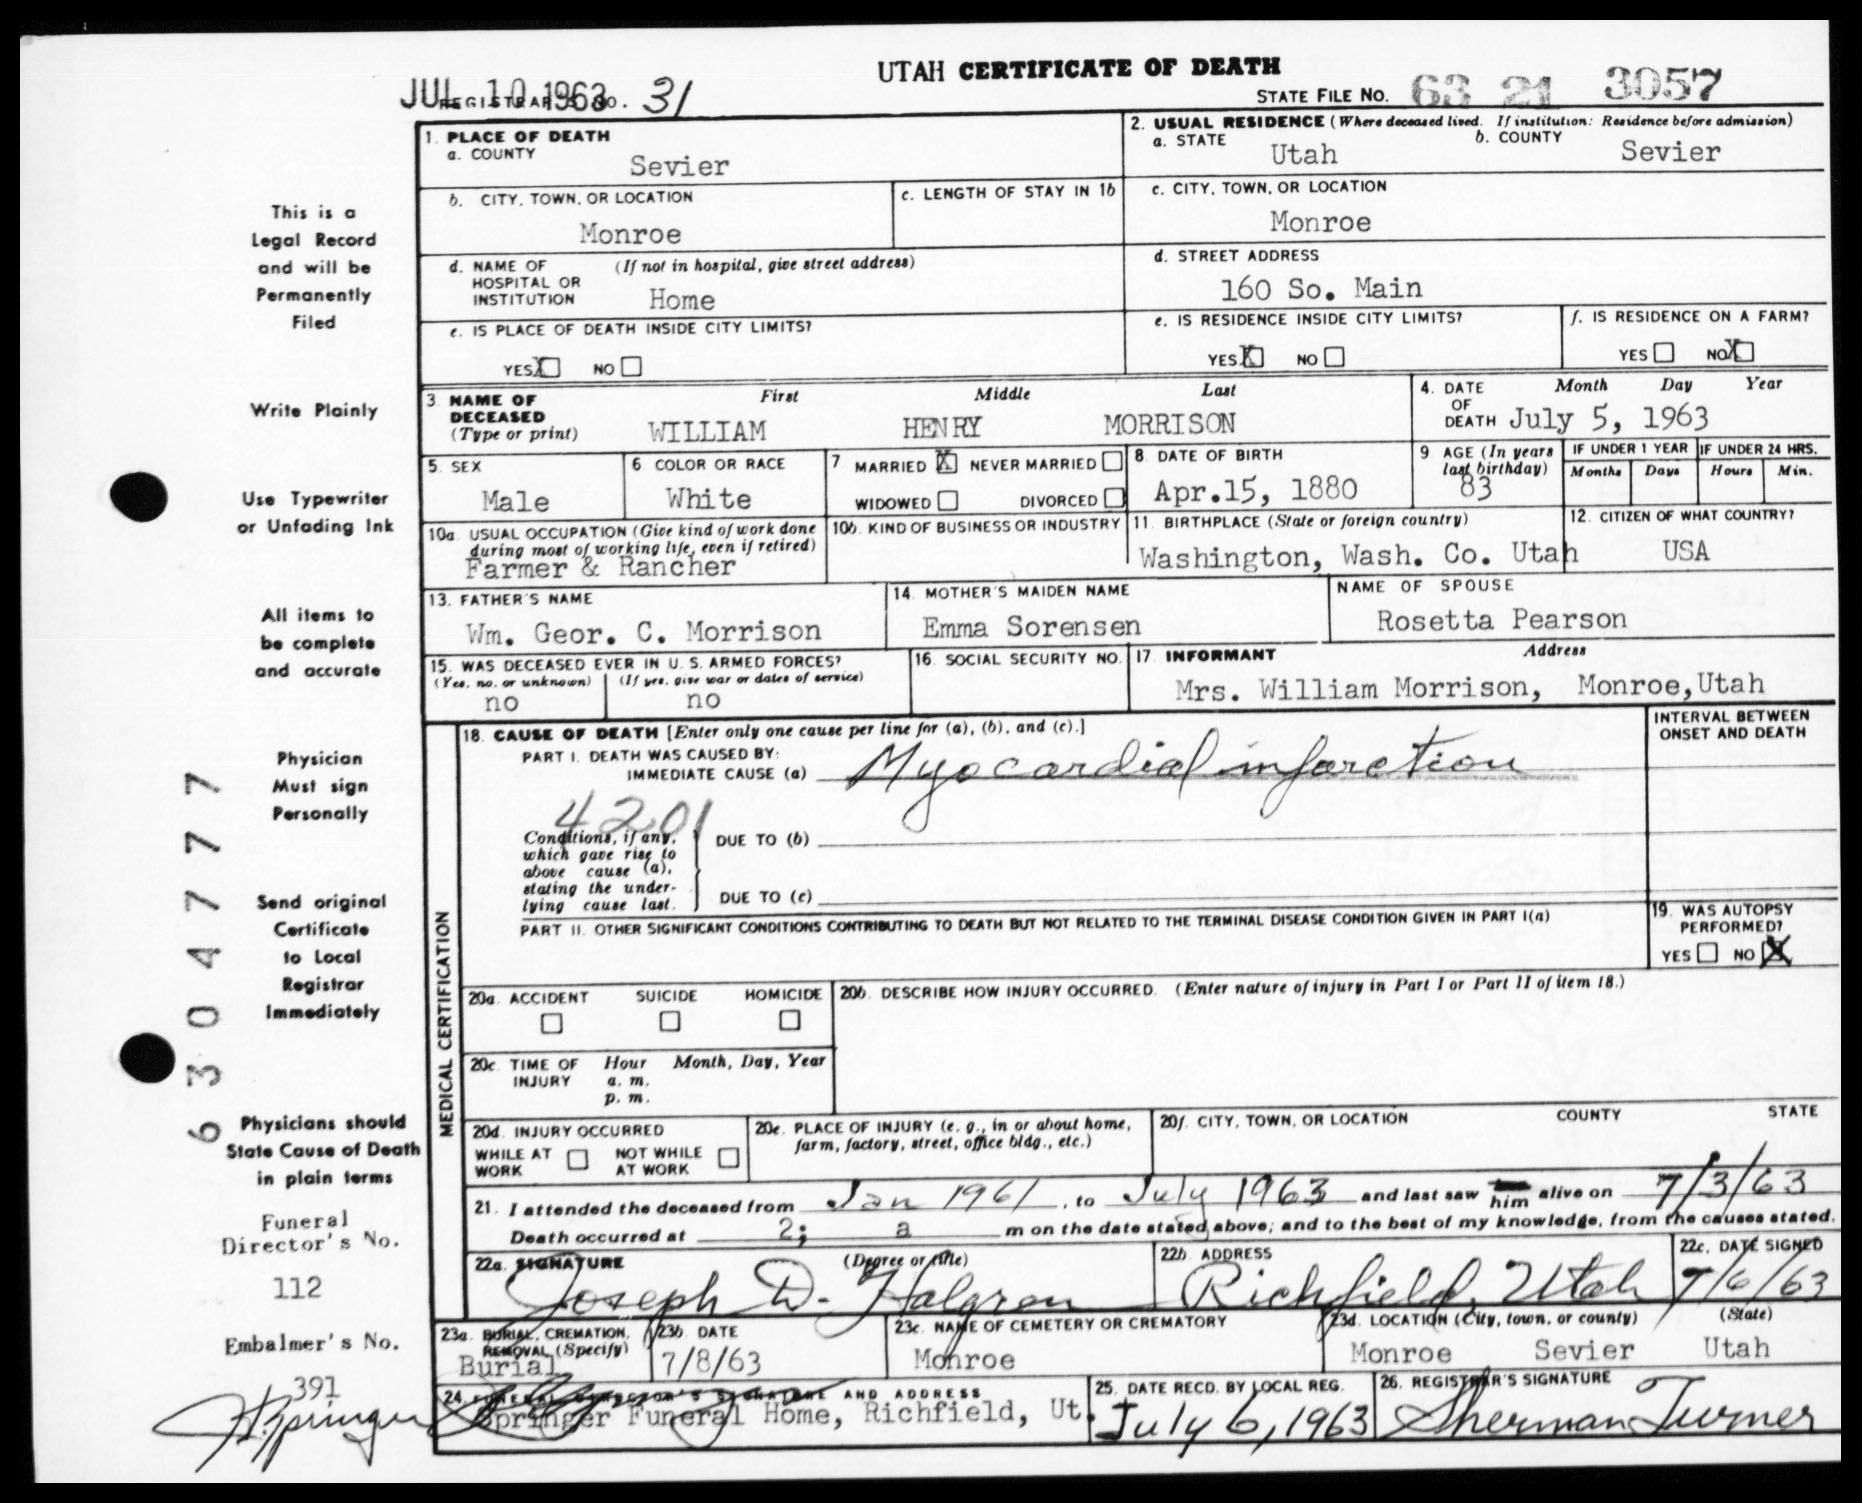 UTAH CERTIFICATE OF DEATH
JUL 10 1963
REGISTRAR'S NO. 31
STATE FILE NO. 63 21 3057
1. PLACE OF DEATH
a. COUNTY
Sevier
2. USUAL RESIDENCE (Where deceased lived. If institution: Residence before admission)
a. STATE
Utah
b. COUNTY
Sevier
b. CITY, TOWN, OR LOCATION
Monroe
c. LENGTH OF STAY IN 1b
c. CITY, TOWN, OR LOCATION
Monroe
d. NAME OF HOSPITAL OR INSTITUTION
(If not in hospital, give street address)
Home
d. STREET ADDRESS
160 So. Main
e. IS PLACE OF DEATH INSIDE CITY LIMITS?
YES X NO
e. IS RESIDENCE INSIDE CITY LIMITS?
YES X NO
f. IS RESIDENCE ON A FARM?
YES NO X
3. NAME OF DECEASED
(Type or print)
First Middle Last
WILLIAM HENRY MORRISON
4. DATE OF DEATH
Month Day Year
July 5, 1963
5. SEX
Male
6 COLOR OR RACE
White
7 MARRIED X NEVER MARRIED
WIDOWED DIVORCED
8. DATE OF BIRTH
Apr.15, 1880
9 AGE (In years last birthday)
83
IF UNDER 1 YEAR
Months Days
IF UNDER 24 HRS.
Hours Min.
10a. USUAL OCCUPATION (Give kind of work done during most of working life, even if retired)
Farmer & Rancher
10b. KIND OF BUSINESS OR INDUSTRY
11. BIRTHPLACE (State or foreign country)
Washington, Wash. Co. Utah
12. CITIZEN OF WHAT COUNTRY?
USA
13. FATHER'S NAME
Wm. Geor. C. Morrison
14. MOTHER'S MAIDEN NAME
Emma Sorensen
NAME OF SPOUSE
Rosetta Pearson
15. WAS DECEASED EVER IN U. S. ARMED FORCES?
(Yes, no, or unknown)
no
(If yes, give war or dates of service)
no
16. SOCIAL SECURITY NO.
17. INFORMANT Address
Mrs. William Morrison, Monroe, Utah
MEDICAL CERTIFICATION
18. CAUSE OF DEATH [Enter only one cause per line for (a), (b), and (c).]
INTERVAL BETWEEN ONSET AND DEATH
PART I. DEATH WAS CAUSED BY:
IMMEDIATE CAUSE (a) Myocardial infarction
4201
Conditions, if any,
which gave rise to
above cause (a),
stating the under-
lying cause last.
DUE TO (b)
DUE TO (c)
PART II. OTHER SIGNIFICANT CONDITIONS CONTRIBUTING TO DEATH BUT NOT RELATED TO THE TERMINAL DISEASE CONDITION GIVEN IN PART I(a)
19. WAS AUTOPSY PERFORMED?
YES NO X
20a. ACCIDENT SUICIDE HOMICIDE
20b. DESCRIBE HOW INJURY OCCURRED. (Enter nature of injury in Part I or Part II of item 18.)
20c. TIME OF INJURY
Hour Month, Day, Year
a. m.
p. m.
20d. INJURY OCCURRED
WHILE AT WORK
NOT WHILE AT WORK
20e. PLACE OF INJURY (e. g., in or about home, farm, factory, street, office bldg., etc.)
20f. CITY, TOWN, OR LOCATION COUNTY STATE
21. I attended the deceased from Jan 1961, to July 1963 and last saw him alive on 7/3/63
Death occurred at 2; a m on the date stated above; and to the best of my knowledge, from the causes stated.
22a. SIGNATURE (Degree or title)
Joseph D. Halgren
22b. ADDRESS
Richfield, Utah
22c. DATE SIGNED
7/6/63
23a. BURIAL, CREMATION, REMOVAL (Specify)
Burial
23b. DATE
7/8/63
23c. NAME OF CEMETERY OR CREMATORY
Monroe
23d. LOCATION (City, town, or county) (State)
Monroe Sevier Utah
24. FUNERAL DIRECTOR'S SIGNATURE AND ADDRESS
Springer Funeral Home, Richfield, Ut.
25. DATE RECD. BY LOCAL REG.
July 6, 1963
26. REGISTRAR'S SIGNATURE
Sherman Turner
This is a
Legal Record
and will be
Permanently
Filed
Write Plainly
Use Typewriter
or Unfading Ink
All items to
be complete
and accurate
Physician
Must sign
Personally
Send original
Certificate
to Local
Registrar
Immediately
Physicians should
State Cause of Death
in plain terms
Funeral
Director's No.
112
Embalmer's No.
391
Springer
63047777